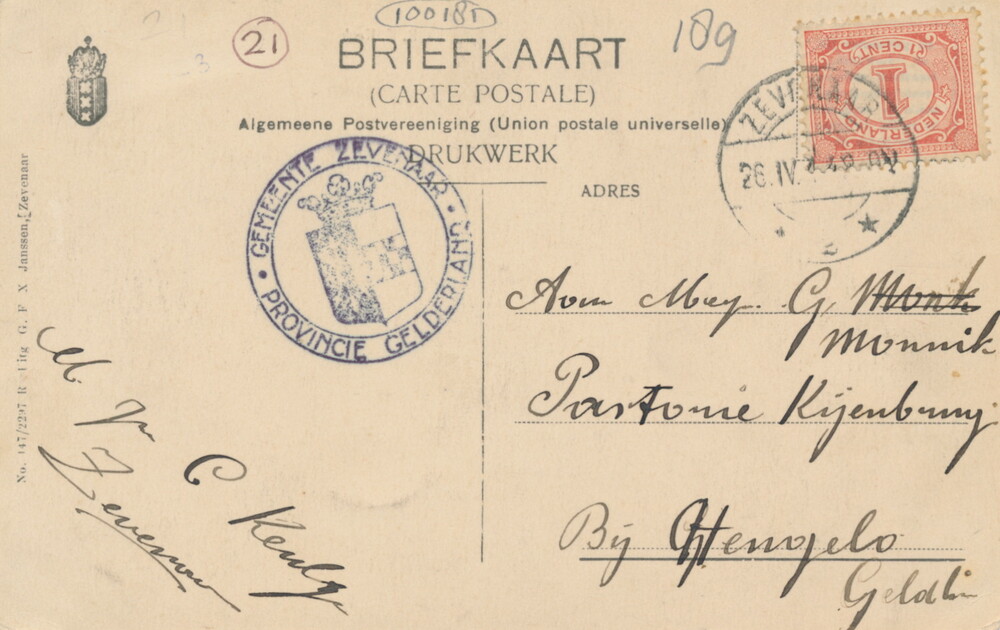 10018T
21
189
BRIEFKAART
(CARTE POSTALE)
Algemeene Postvereeniging (Union postale universelle)
DRUKWERK
ADRES
NEDERLAND
1
(1 CENT)
ZEVENAAR
26.IV
GEMEENTE ZEVENAAR
PROVINCIE GELDERLAND
No. 147/2297 R Uitg G. F X Janssen, Zevenaar
Aan Mej. G Monk
Monnik
Pastorie Kijenburg
Bij Hengelo
Geldln
M. Vr
C
Zevenaar